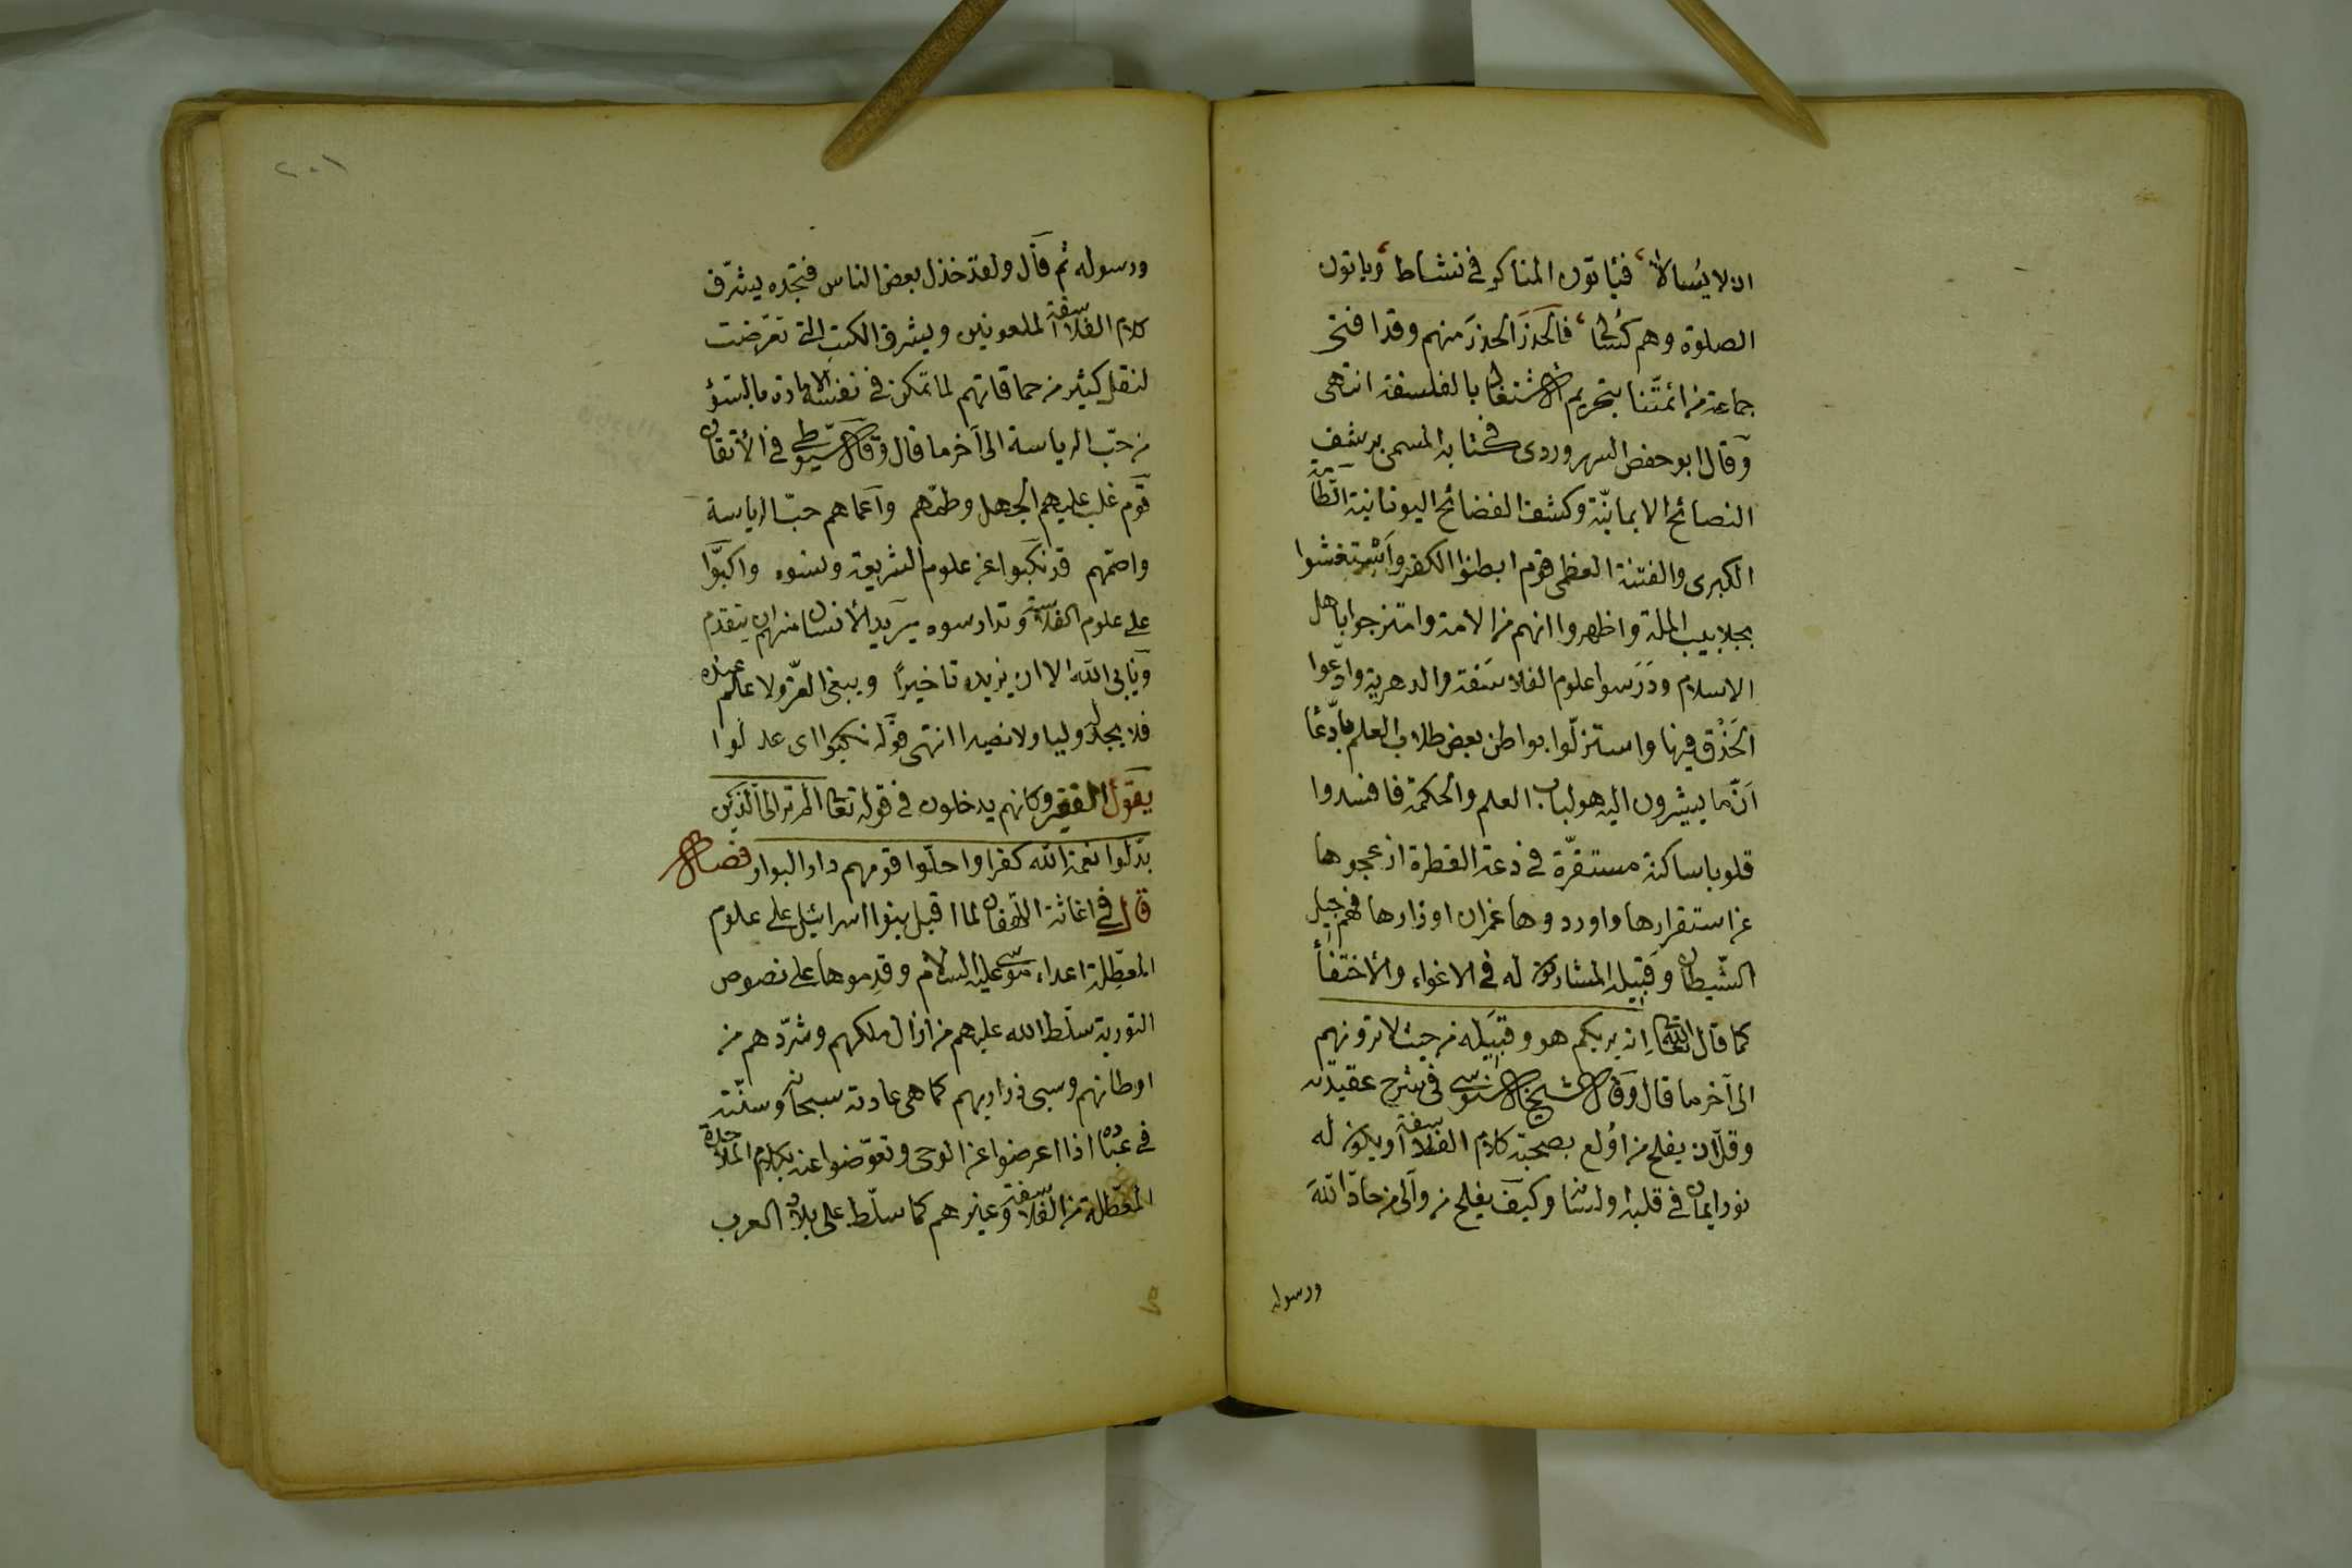 ان لا يسالا، فيأتون المناكر في نشاط، ويأتون
الصلوة وهم كسالى، فالحذر الحذر منهم وقد افتى
جماعة من ائمتنا بتحريم الاشتغال بالفلسفة انتهى
وقال ابو حفص السهروردى في كتابه المسمى برشف
النصائح الايمانية وكشف الفضائح اليونانية الطامة
الكبرى والفتنة العظمى قوم ابطنوا الكفر واستغشوا
بجلابيب الملة واظهروا انهم من الامة وامتزجوا باهل
الاسلام ودرسوا علوم الفلاسفة والدهرية وادعوا
الحذق فيها واستزلوا بواطن بعض طلاب العلم بادعا
ان ما يشيرون اليه هو لباب العلم والحكمة فافسدوا
قلوبا ساكنة مستقرة في دعة الفطرة ازعجوها
عن استقرارها واوردوها غمران اوزارها فهم جيل
الشيطان وقبيله المشاركون له في الاغواء والاختفأ
كما قال الله تعالى انه يريكم هو وقبيله من حيث لا ترونهم
الى آخر ما قال وقال الشيخ السنوسى في شرح عقيدته
وقل ان يفلح من اولع بصحبة كلام الفلاسفة او يكون له
نور ايمان في قلبه او لسانه وكيف يفلح من والى من حاد الله
ورسوله
٢٠١
ورسوله ثم قال ولقد خذل بعض الناس فتجده يشرف
كلام الفلاسفة الملعونين ويشرف الكتب التى تعرضت
لنقل كثير من حماقاتهم لما تمكن في نفسه الامارة بالسؤ
من حب الرياسة الى آخر ما قال وقال السيوطى في الأتقان
قوم غلب عليهم الجهل وطمهم واعماهم حب الرياسة
واصمهم قد نكبوا عن علوم الشريعة ونسوه واكبوا
على علوم الفلاسفة وتدارسوه يريد الأنسان منهم ان يتقدم
ويأبى الله الا ان يزيده تاخيرا ويبغى العز ولا علم عنده
فلا يجد له وليا ولا نصيرا انتهى قوله نكبوا اى عدلوا
يقول الفقير وكانهم يدخلون في قوله تعالى الم تر الى الذين
بدلوا نعمة الله كفرا واحلوا قومهم دار البوار فصل
قال في اغاثة اللهفان لما اقبل بنوا اسرائيل على علوم
المعطلة اعداء موسى عليه السلام وقدموها على نصوص
التورية سلط الله عليهم من ازال ملكهم وشردهم من
اوطانهم وسبى ذراريهم كما هى عادته سبحانه وسنته
في عباده اذا اعرضوا عن الوحى وتعوضوا عنه بكلام الملاحدة
المعطلة من الفلاسفة وغيرهم كما سلط على بلاد العرب